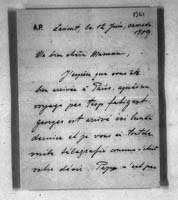 A.P.
Lancut, le 12 Juin, samedi
1909
Ma bien chère Maman,
J'espère que vous êtes
bien arrivée à Paris, après un
voyage pas trop fatigant
Georges est arrivé ici lundi
dernier et je vous ai
suite télégrafié comme c'était
votre désir. n'est pas